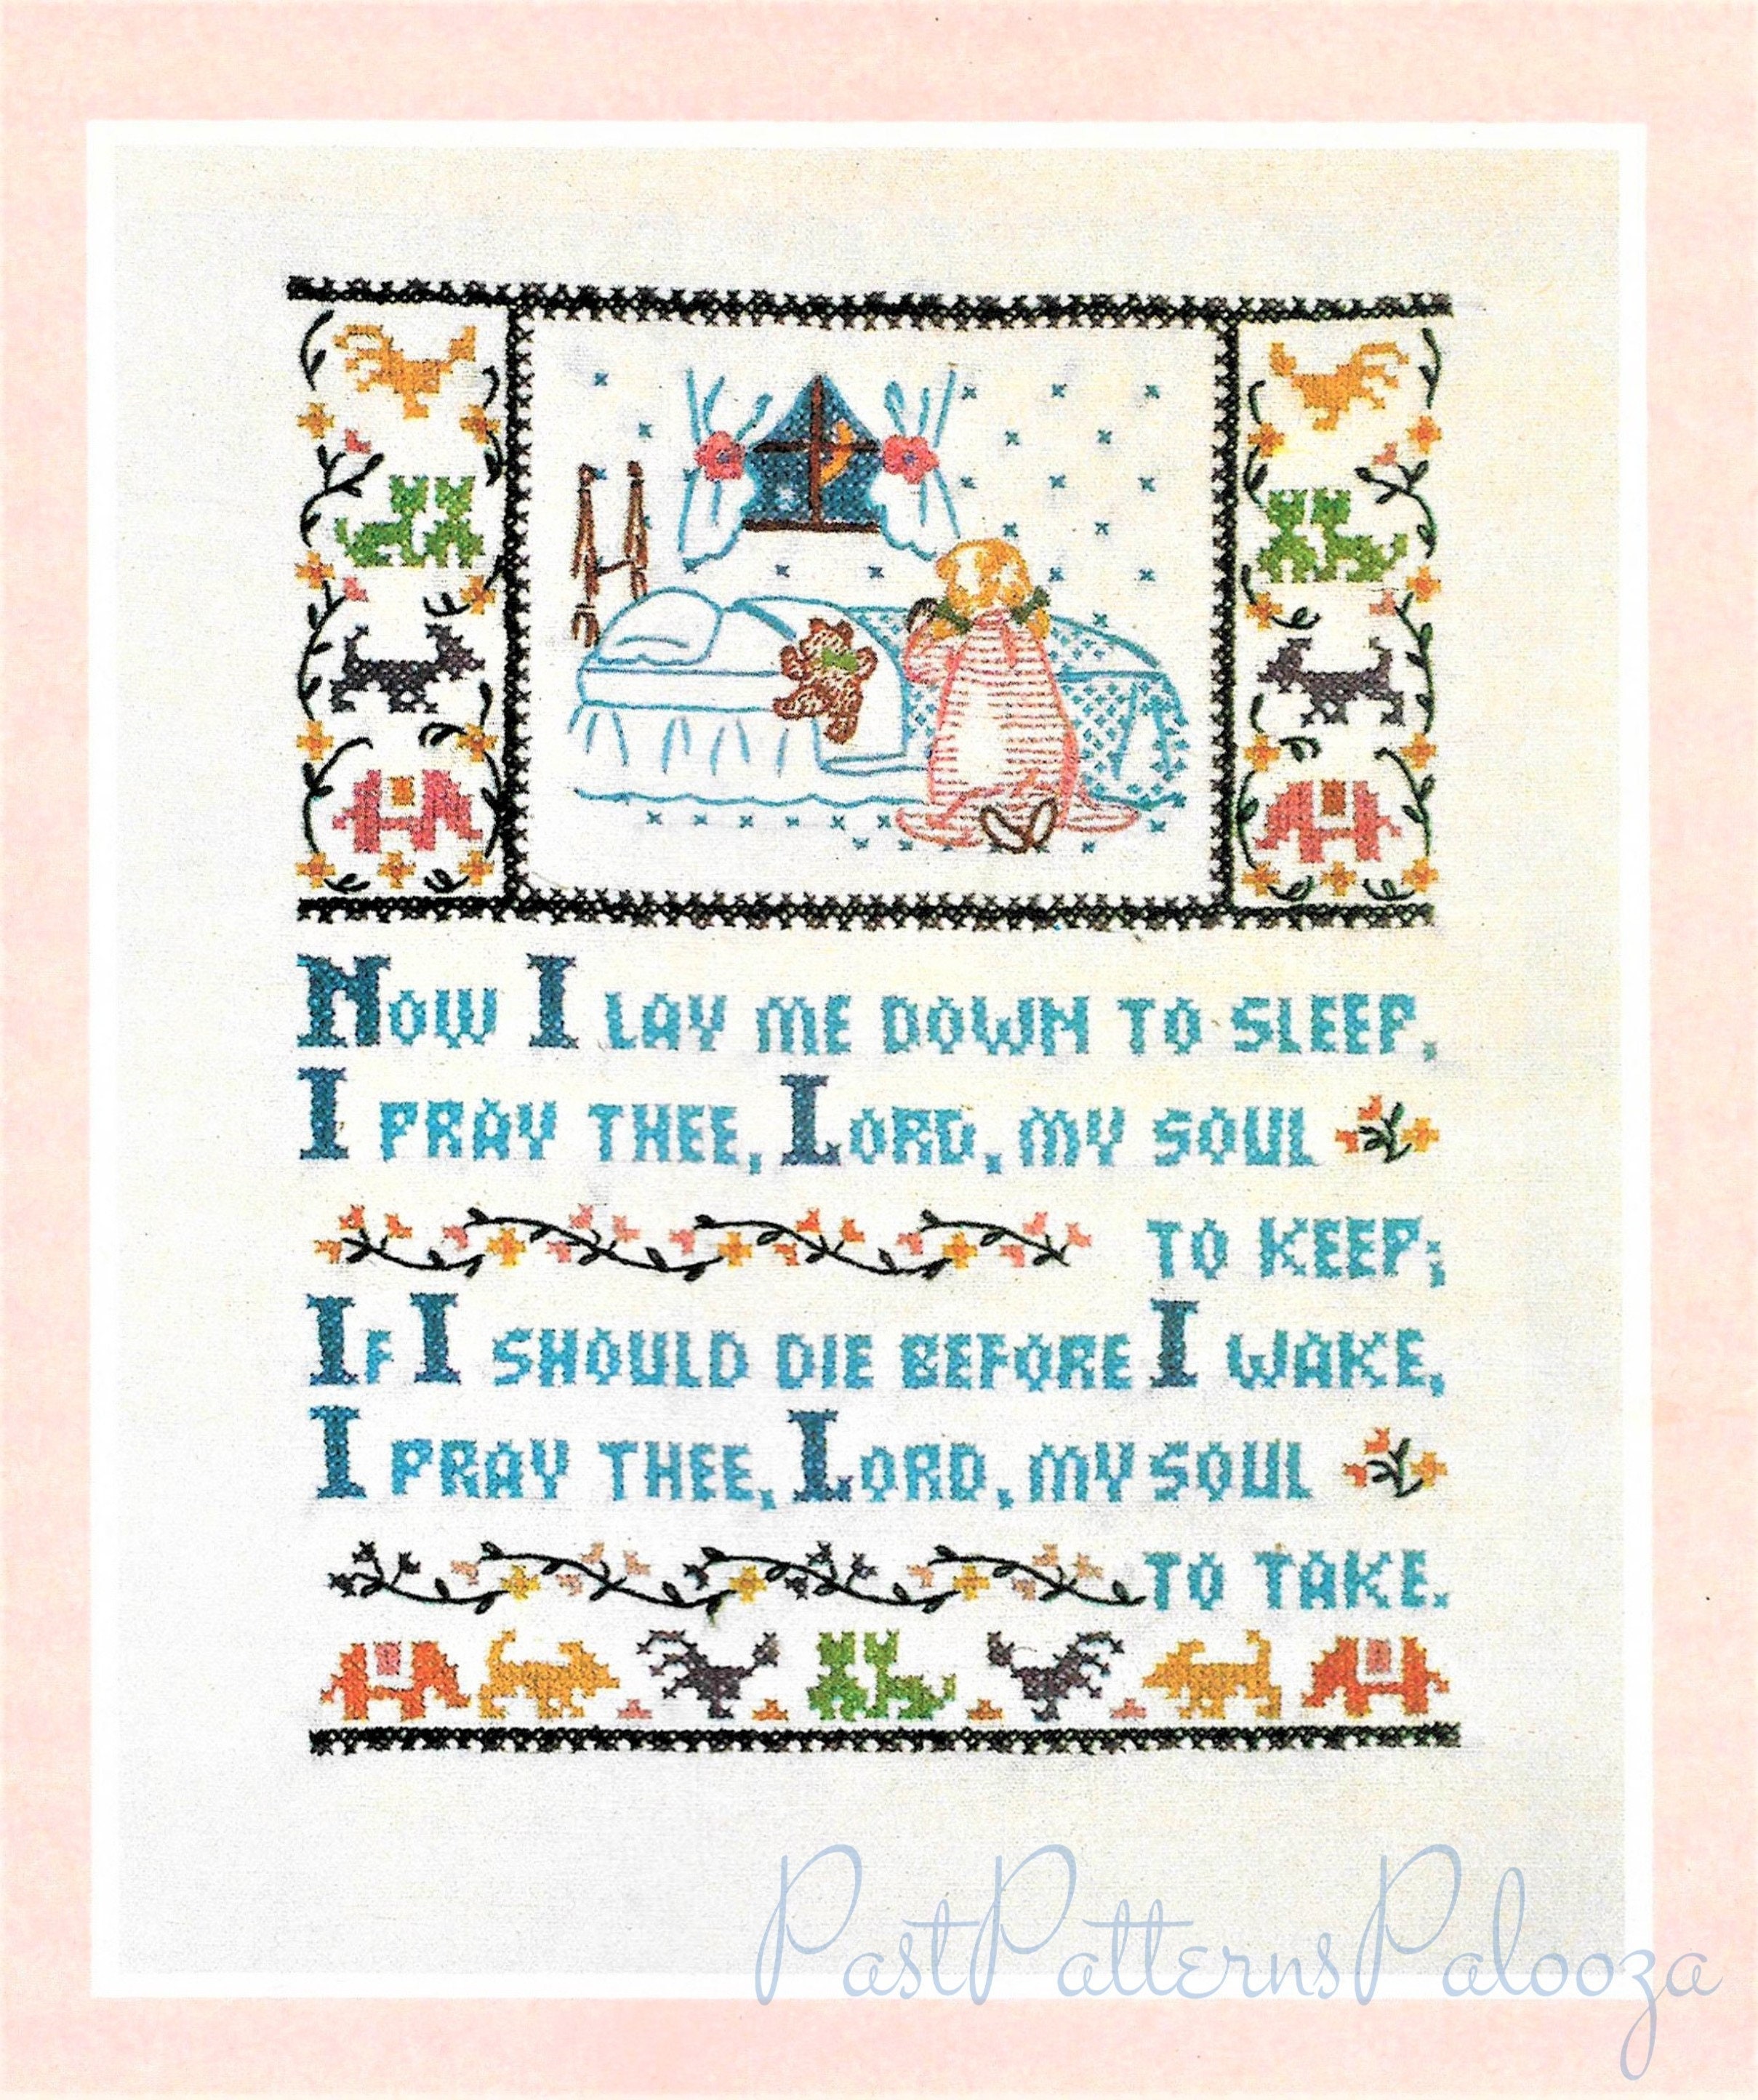 Now I LAY ME DOWN TO SLEEP,
I PRAY THEE, LORD, MY SOUL
TO KEEP;
IF I SHOULD DIE BEFORE I WAKE,
I PRAY THEE, LORD, MY SOUL
TO TAKE.
PastPatternsPalooza